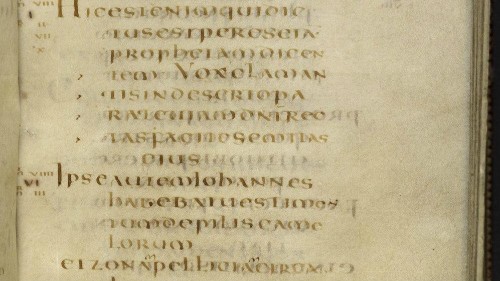 HICESTENIMQUIDIC
TUSESTPERESEIA
PROPHETAMDICEN
TEM VOXCLAMAN
TISINDESERTOPA
RATEUIAMDNIREC
TASFACITESEMITAS
EIUS
VI IPSEAUTEMIOHANNES
HABEBATUESTIMEN
TUMDEPILISCAME
LORUM
ETZONAMPELLICIAMCIRCA